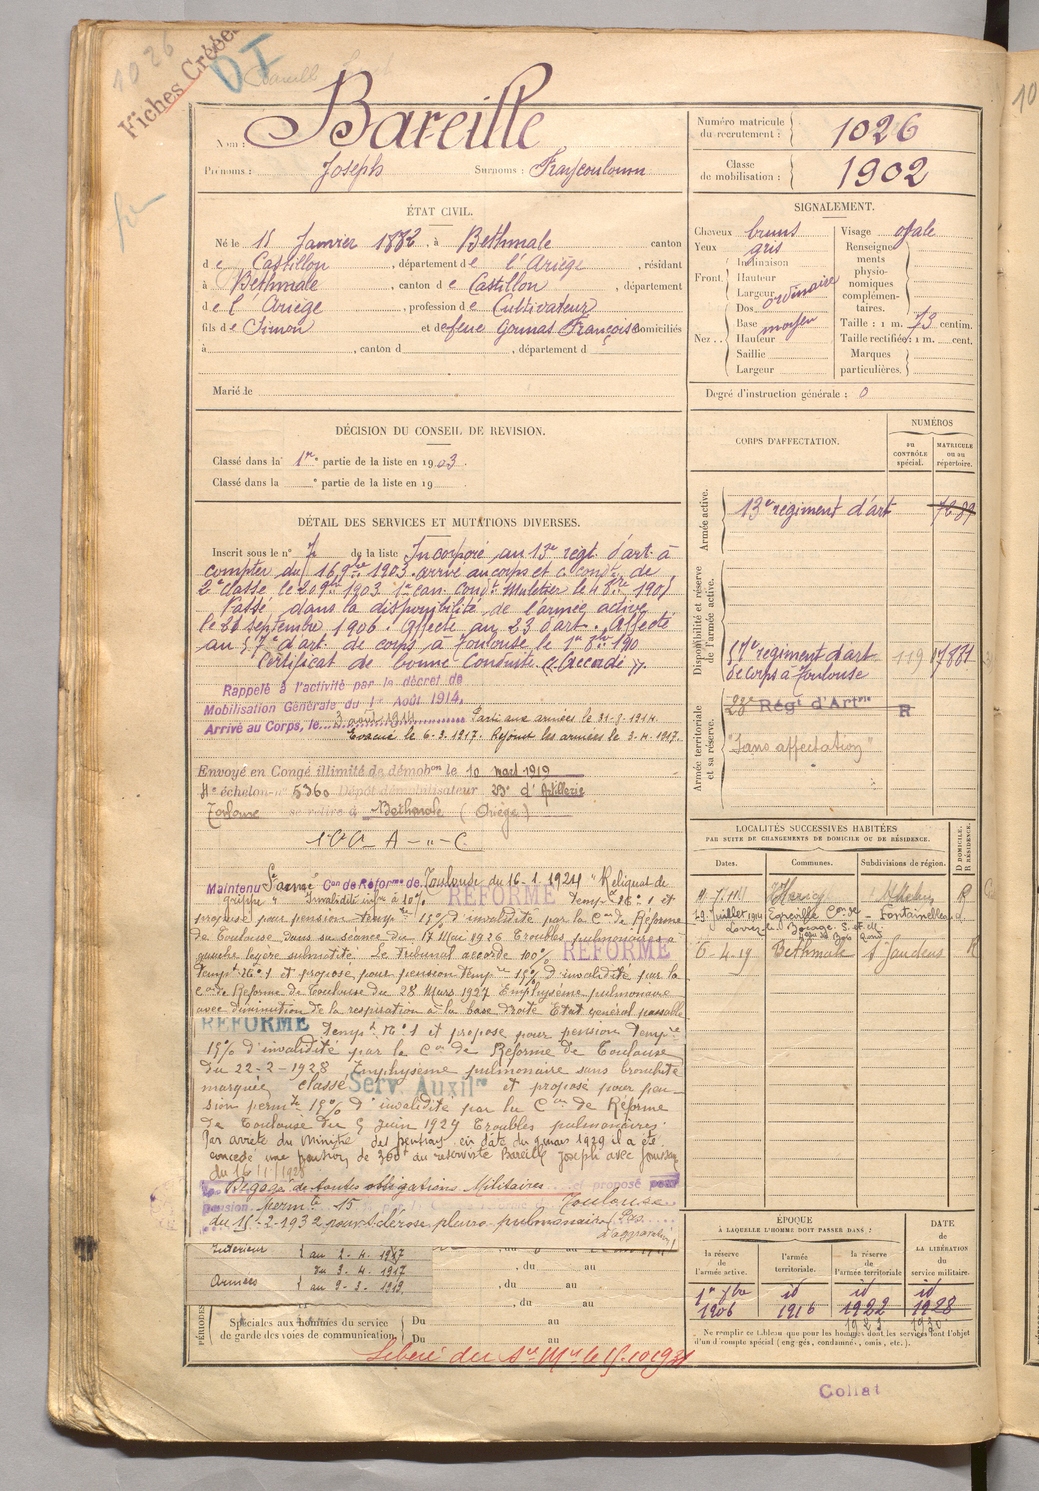 1026
Fiches Créées
DI
Nom : Bareille
Prénoms : Joseph Surnoms :
Numéro matricule du recrutement : 1026
Classe de mobilisation : 1902
ÉTAT CIVIL.
Né le 15 Janvier 1882, à Bethmale canton
de Castillon, département de l'Ariège, résidant
à Bethmale, canton de Castillon, département
de l'Ariège, profession de Cultivateur
fils de Simon et de feue Gounas Françoise domiciliés
à , canton d , département d
Marié le
SIGNALEMENT.
Cheveux bruns
Yeux gris
Front. Inclinaison
Hauteur
Largeur ordinaire
Nez.. Dos
Base moyen
Hauteur
Saillie
Largeur
Visage ovale
Renseignements physionomiques complémentaires.
Taille : 1 m. 73 centim.
Taille rectifiée : 1 m. cent.
Marques particulières.
Degré d'instruction générale : 0
DÉCISION DU CONSEIL DE REVISION.
Classé dans la 1re partie de la liste en 1903.
Classé dans la ° partie de la liste en 19
DÉTAIL DES SERVICES ET MUTATIONS DIVERSES.
Inscrit sous le n° 7 de la liste Incorporé au 13e régt d'art. à
compter du 16 9bre 1903. arrivé au corps et 2e condr de
2e classe le 9bre 1903 1er can. condr Muletier le 4 8bre 1905
Passé dans la disponibilité de l'armée active
le 21 septembre 1906. Affecté au 23 d'art. Affecté
au 57e d'art. de corps à Toulouse le 1er 8bre 190
Certificat de bonne Conduite "Accordé".
Rappelé à l'activité par le décret de
Mobilisation Générale du 1er Août 1914,
Arrivé au Corps, le 3 août 1914 Parti aux armées le 31-8-1914.
Évacué le 6-3-1917. Rejoint les armées le 3-4-1917.
Envoyé en Congé illimité de démobon le 10 mars 1919
4e échelon n° 5360 Dépôt démobilisateur 23e d'Artillerie
Toulouse se retire à Bethmale (Ariège)
Maintenu Sce armé Con de Réforme de Toulouse du 16.1.1924 "Reliquat de
grippe" Invalidité infre à 10%
RÉFORMÉ tempre n° 1 et
proposé pour pension tempre 15% d'invalidité par la Con de Réforme
de Toulouse dans sa séance du 17 Mai 1926 Troubles pulmonaires à
gauche légère submatité. Le tribunal accorde 100%
RÉFORMÉ
tempre n° 1 et proposé pour pension tempre 15% d'invalidité par la
Con de Réforme de Toulouse du 28 Mars 1927 Emphysème pulmonaire
avec diminution de la respiration à la base droite État général passable
RÉFORMÉ tempre n° 1 et proposé pour pension tempre
15% d'invalidité par la Con de Réforme de Toulouse
du 22-2-1928 Emphysème pulmonaire sans bronchite
marquée classé Serv. Auxilre et proposé pour pen-
sion permte 15% d'invalidité par la Con de Réforme
de Toulouse du 5 juin 1929 Troubles pulmonaires.
Par arrêté du Ministre des pensions en date du 9 mars 1929 il a été
concédé une pension de 360f au réserviste Bareille Joseph avec jouissance
du 16/1/1928
Dégagé de toutes obligations Militaires et proposé pour
pension permte 15 Toulouse
du 15-2-1932 pour Sclérose pleuro pulmonaire (Pas
d'aggravation)
Intérieur au 2-4-1917
Armées du 3-4-1917
au 9-3-1919
, du au
, du au
, du au
PÉRIODES
Spéciales aux hommes du service de garde des voies de communication
Du au
Du au
Libéré du Sce Mre le 15.10.1931
CORPS D'AFFECTATION.
NUMÉROS
au CONTRÔLE spécial.
MATRICULE ou au répertoire.
Armée active.
13e régiment d'art 7289
Disponibilité et réserve de l'armée active.
57e régiment d'art 119 17881
de corps à Toulouse
Armée territoriale et sa réserve.
23e Régt d'Artrie R
"Sans affectation"
LOCALITÉS SUCCESSIVES HABITÉES
PAR SUITE DE CHANGEMENTS DE DOMICILE OU DE RÉSIDENCE.
Dates. Communes. Subdivisions de région. D DOMICILE. R RÉSIDENCE.
R
29 Juillet 1914 Egreville Con de Fontainebleau
Lorrez le Bocage S. et M.
6-4-19 Bethmale St Gaudens R
ÉPOQUE
À LAQUELLE L'HOMME DOIT PASSER DANS :
la réserve de l'armée active.
l'armée territoriale.
la réserve de l'armée territoriale
DATE DE LA LIBÉRATION du service militaire.
1er 9bre 1906
id 1916
id 1922
id 1928
Ne remplir ce tableau que pour les hommes dont les services font l'objet
d'un compte spécial (engagés, condamnés, omis, etc.).
Collat
10